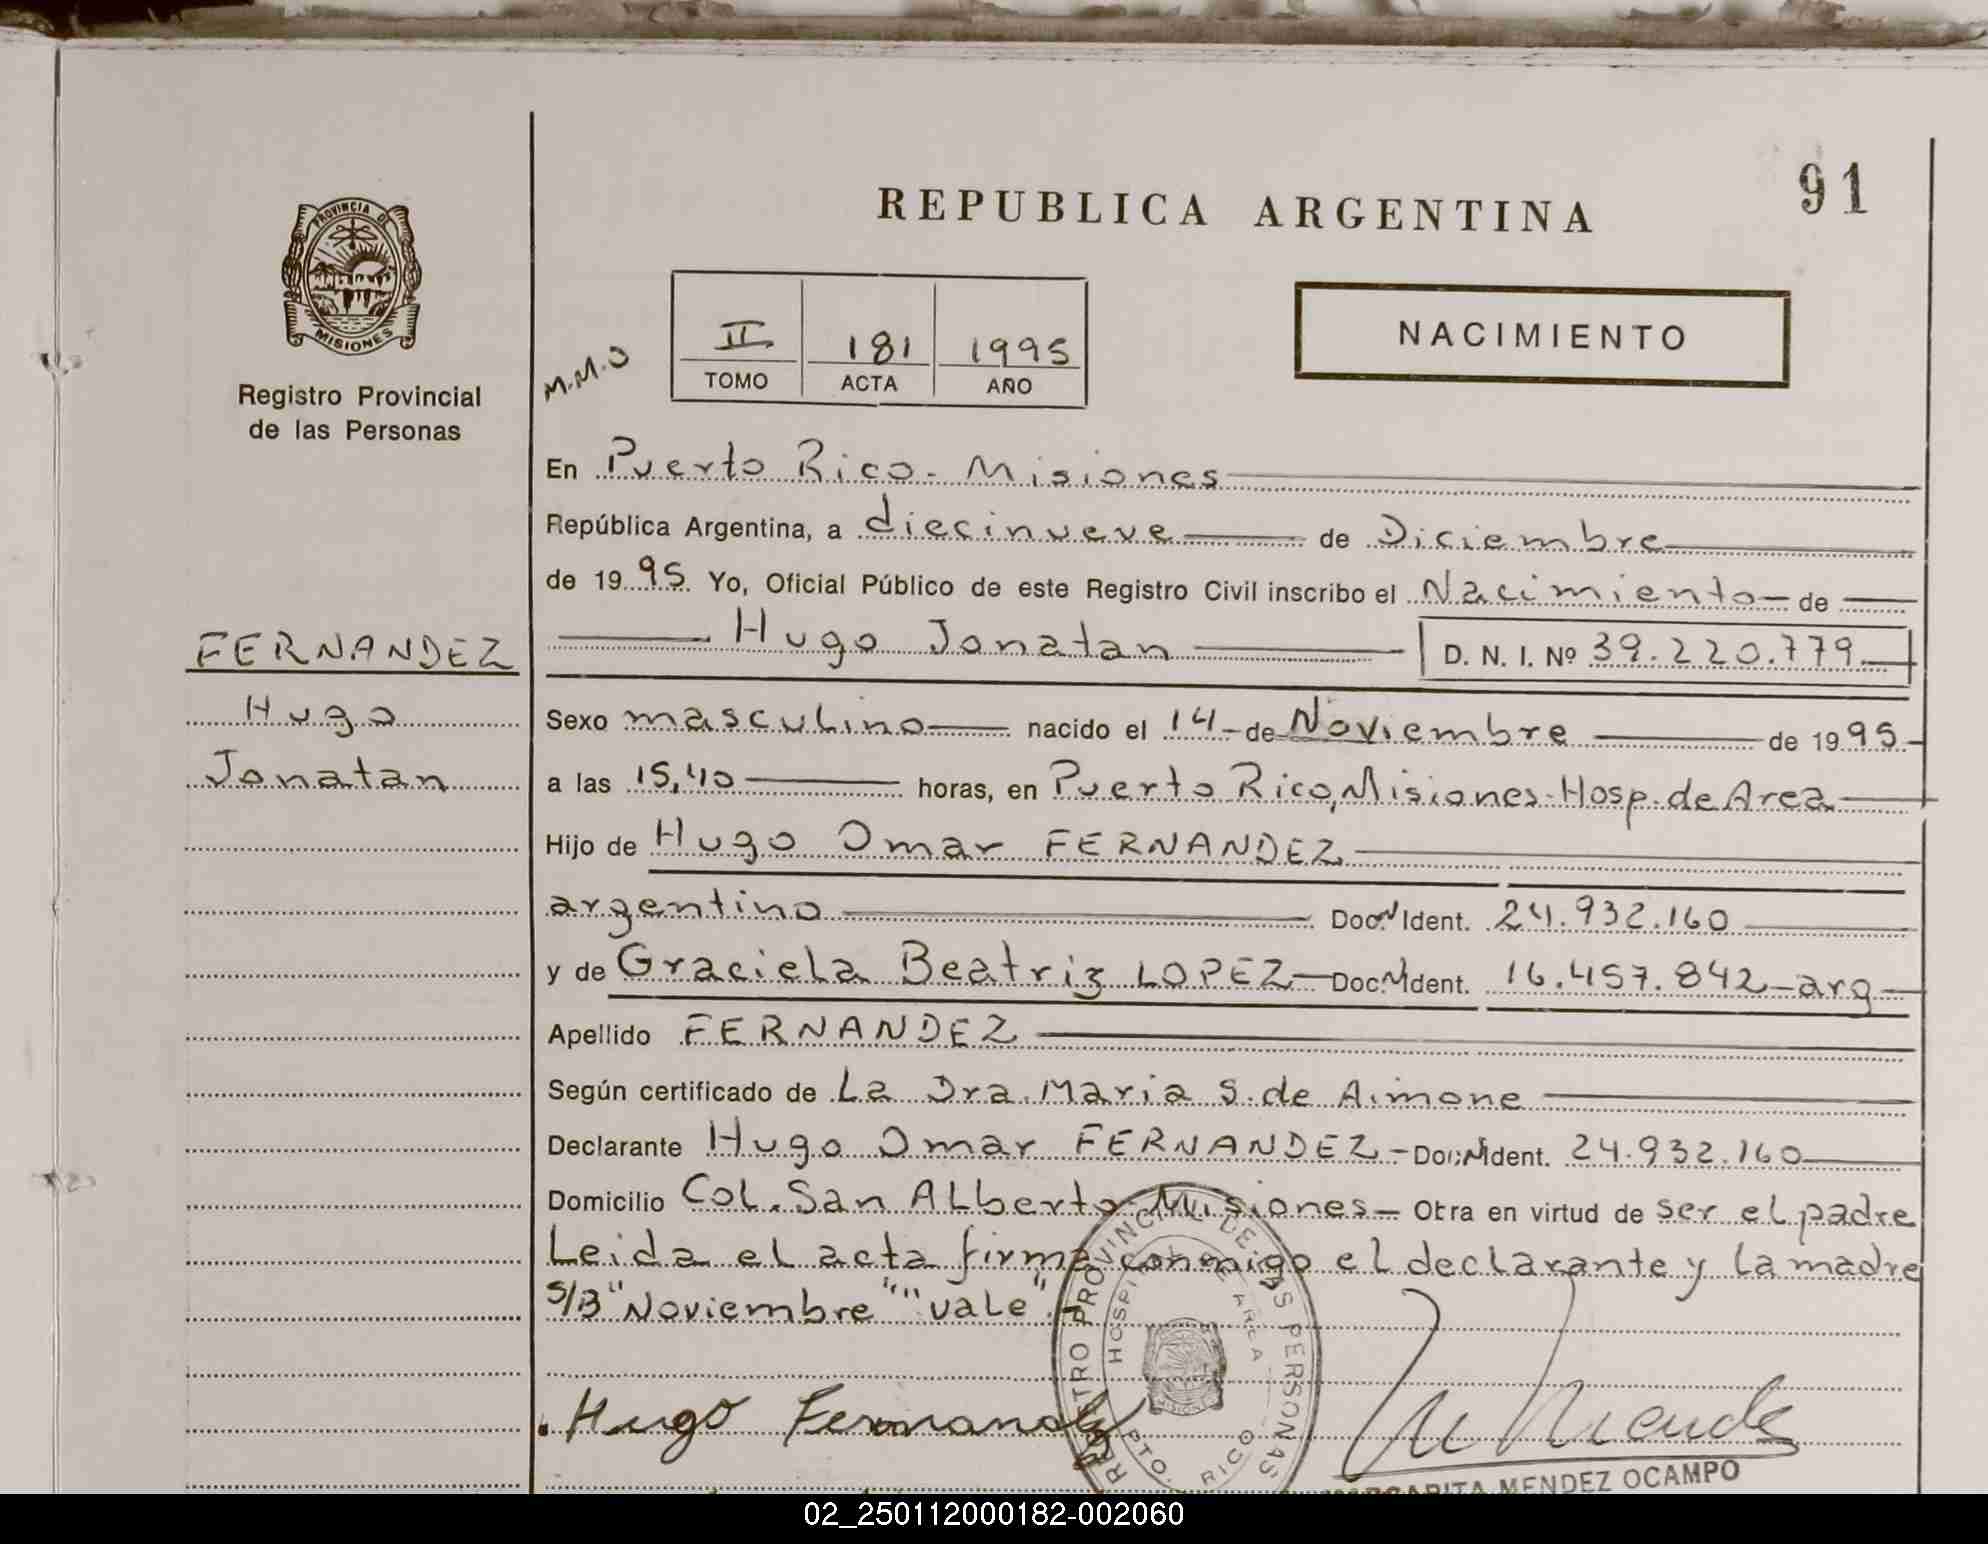 91
REPUBLICA ARGENTINA
PROVINCIA DE
MISIONES
Registro Provincial
de las Personas
NACIMIENTO
M.M.O
II 181 1995
TOMO ACTA AÑO
En Puerto Rico - Misiones
República Argentina, a diecinueve de Diciembre
de 1995 Yo, Oficial Público de este Registro Civil inscribo el Nacimiento de
Hugo Jonatan D. N. I. Nº 39.220.779
FERNANDEZ
Hugo
Jonatan
Sexo masculino nacido el 14 - de Noviembre de 1995
a las 15,40 horas, en Puerto Rico, Misiones - Hosp. de Area
Hijo de Hugo Omar FERNANDEZ
argentino Doc. Ident. 24.932.160
y de Graciela Beatriz LOPEZ Doc. Ident. 16.457.842 - arg
Apellido FERNANDEZ
Según certificado de La Dra. Maria S. de Aimone
Declarante Hugo Omar FERNANDEZ - Doc. Ident. 24.932.160
Domicilio Col. San Alberto - Misiones - Obra en virtud de ser el padre
Leida el acta firma conmigo el declarante y la madre
S/B "Noviembre" "vale".-
REGISTRO PROVINCIAL DE LAS PERSONAS
HOSPITAL DE AREA
PTO. RICO
Hugo Fernandez
MARGARITA MENDEZ OCAMPO
02_250112000182-002060